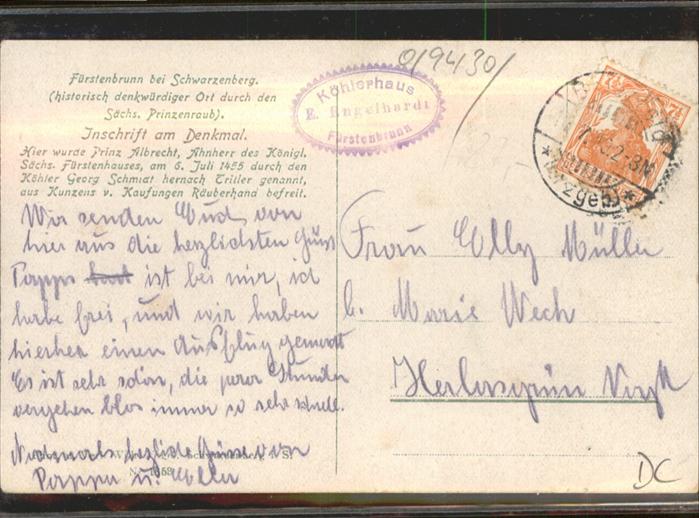 Fürstenbrunn bei Schwarzenberg.
(historisch denkwürdiger Ort durch den
Sächs. Prinzenraub).
Inschrift am Denkmal.
Hier wurde Prinz Albrecht, Ahnherr des Königl.
Sächs. Fürstenhauses, am 8. Juli 1455 durch den
Köhler Georg Schmidt hernach Triller genannt,
aus Kunzens v. Kaufungen Räuberhand befreit.
Köhlerhaus
E. Engelhardt
Fürstenbrunn
0/9430/
7½
2-3N
Wir senden Euch von
hier aus die herzlichsten Grüsse
Pappa hat ist bei mir, ich
habe frei, und wir haben
hierher einen Ausflug gemacht
Es ist sehr schön, die paar Stunden
vergehen blos immer so sehr schnell.
Nochmals herzliche Grüsse von
Pappa u.
Frau Elly Müller
b. Marie Wech
Herlasgrün Vogtl
DC